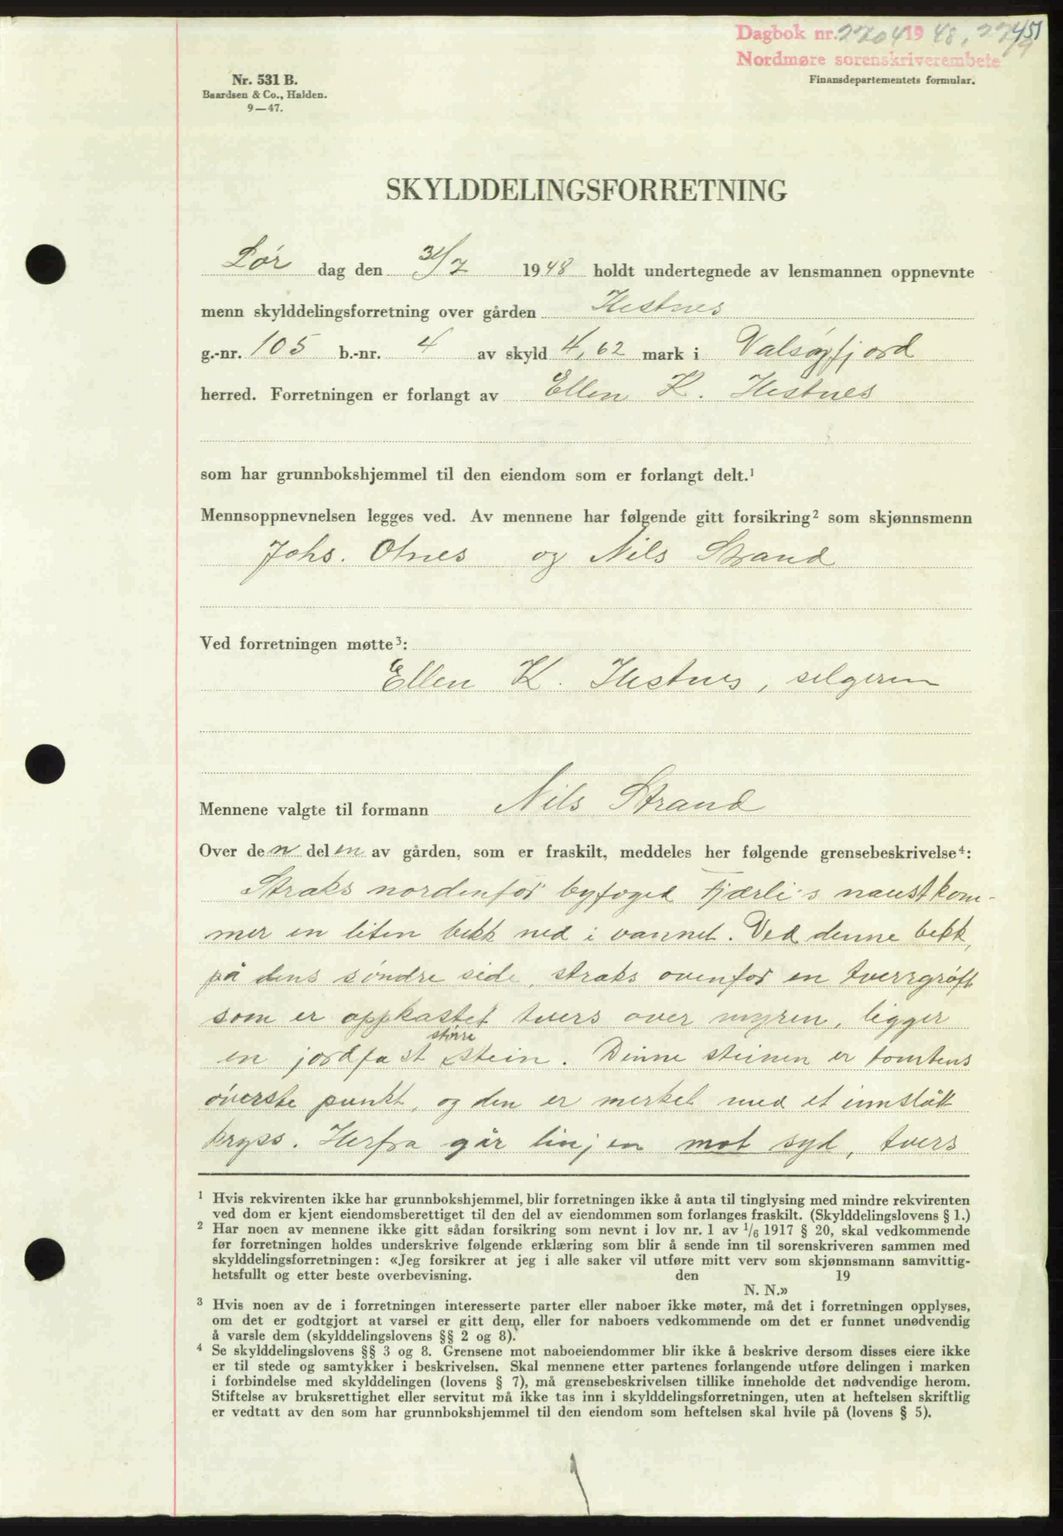 Dagbok nr. 2704 1948, 22/9 451
Nordmøre sorenskriverembete
Nr. 531 B.
Baardsen & Co., Halden.
9—47.
Finansdepartementets formular.
SKYLDDELINGSFORRETNING
Lør dag den 31/7 1948 holdt undertegnede av lensmannen oppnevnte
menn skylddelingsforretning over gården Hestnes
g.-nr. 105 b.-nr. 4 av skyld 4,62 mark i Valsøyfjord
herred. Forretningen er forlangt av Ellen K. Hestnes
som har grunnbokshjemmel til den eiendom som er forlangt delt.¹
Mennsoppnevnelsen legges ved. Av mennene har følgende gitt forsikring² som skjønnsmenn
Johs. Otnes og Nils Strand
Ved forretningen møtte³:
Ellen K. Hestnes, selgeren
Mennene valgte til formann Nils Strand
Over den delen av gården, som er fraskilt, meddeles her følgende grensebeskrivelse⁴:
Straks nordenfor byfoged Fjærli's naust kom-
mer en liten bekk ned i vannet. Ved denne bekk,
på dens søndre side, straks ovenfor en tverrgrøft
som er oppkastet tvers over myren, ligger
en jordfast større stein. Denne steinen er tomtens
øverste punkt, og den er merket med et innslått
kryss. Herfra går linjen mot syd, tvers
¹ Hvis rekvirenten ikke har grunnbokshjemmel, blir forretningen ikke å anta til tinglysing med mindre rekvirenten
ved dom er kjent eiendomsberettiget til den del av eiendommen som forlanges fraskilt. (Skylddelingslovens § 1.)
² Har noen av mennene ikke gitt sådan forsikring som nevnt i lov nr. 1 av 1/6 1917 § 20, skal vedkommende
før forretningen holdes underskrive følgende erklæring som blir å sende inn til sorenskriveren sammen med
skylddelingsforretningen: «Jeg forsikrer at jeg i alle saker vil utføre mitt verv som skjønnsmann samvittig-
hetsfullt og etter beste overbevisning. den 19
N. N.»
³ Hvis noen av de i forretningen interesserte parter eller naboer ikke møter, må det i forretningen opplyses,
om det er godtgjort at varsel er gitt dem, eller for naboers vedkommende om det er funnet unødvendig
å varsle dem (skylddelingslovens §§ 2 og 8).
⁴ Se skylddelingslovens §§ 3 og 8. Grensene mot naboeiendommer blir ikke å beskrive dersom disses eiere ikke
er til stede og samtykker i beskrivelsen. Skal mennene etter partenes forlangende utføre delingen i marken
i forbindelse med skylddelingen (lovens § 7), må grensebeskrivelsen tillike inneholde det nødvendige herom.
Stiftelse av bruksrettighet eller servitut må ikke tas inn i skylddelingsforretningen, uten at heftelsen skriftlig
er vedtatt av den som har grunnbokshjemmel til den eiendom som heftelsen skal hvile på (lovens § 5).